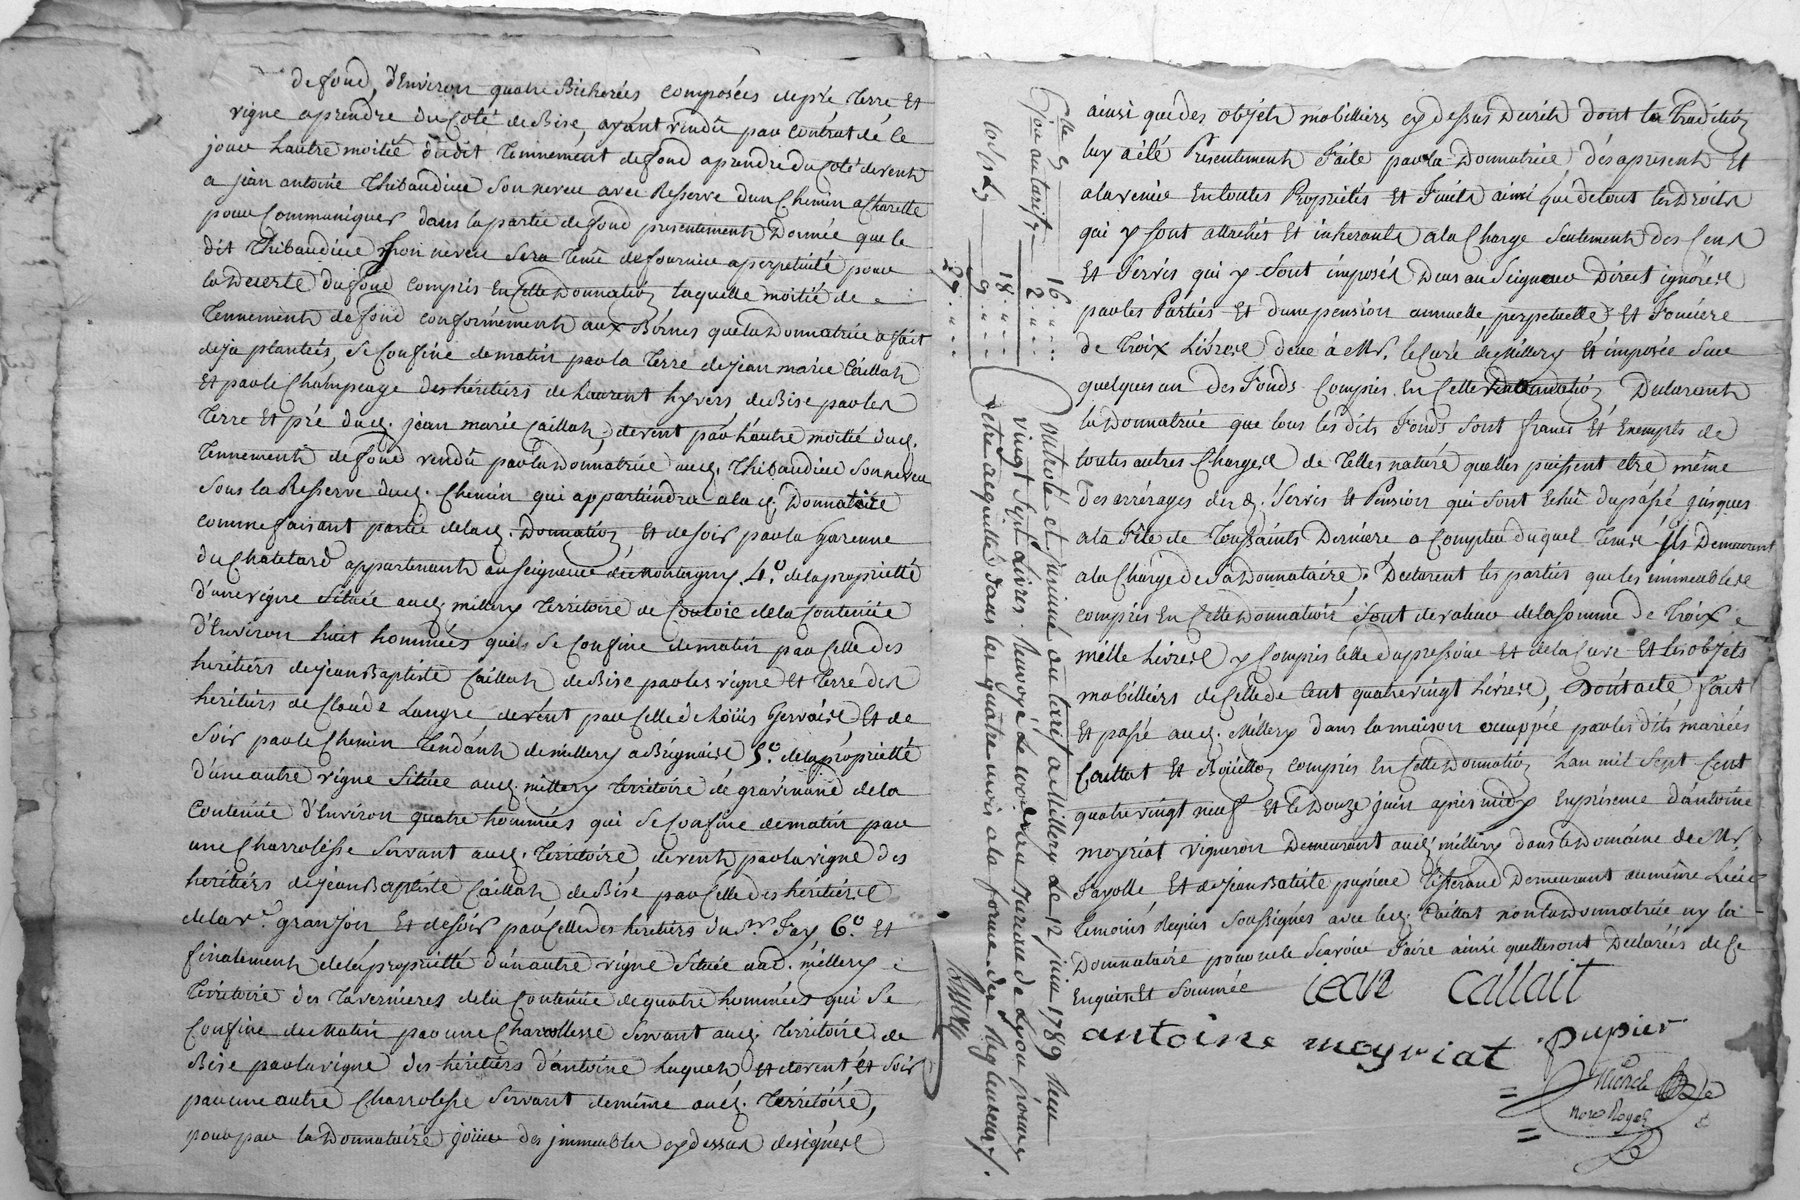 de fond, d'Environ quatre Bicherées composées de pré Terre Et
vigne aprendre du Coté de Bise, ayant vendu par contrat de ce
jour l'autre moitié dudit Tennement de fond aprendre du Coté de vent
a jean antoine Thibaudier son neveu avec Reserve d'un Chemin a Charette
pour Communiquer dans la partie de fond presentement Donnée que le
dit Thibaudier son neveu sera tenu de fournir a perpetuité pour
la Deserte du fond compris En Cette Donnation laquelle moitié de
Tennement de fond conformément aux Bornes que la Donnatrice a fait
deja plantées, se Confine de matin par la Terre de jean marie Caillat
Et par le Champeage des héritiers de Laurent hyvers de Bise par les
Terre Et pré dud. jean marie Caillat, de vent par l'autre moitié dud.
Tennement de fond vendu par la Donnatrice aud. Thibaudier son neveu
sous la Reserve dud. Chemin qui appartiendra a la d. Donnataire
comme faisant partie de lad. Donnation Et de soir par la Garenne
du Chatelard appartenant au seigneur de Montagny. 4.º de la proprieté
d'une vigne située aud. millery Territoire de Coutoir de la Contenüe
d'Environ huit hommées qui se Confine de matin par Celle des
heritiers de jean Baptiste Caillat de Bise par les vigne Et Terre des
heritiers de Claude Langre de vent par Celle de Loüis Gervaise Et de
soir par le Chemin Tendant de millery a Brignaise 5.º de la proprieté
d'une autre vigne située aud. millery Territoire de gravinand de la
Contenüe d'Environ quatre hommées qui se Confine de matin par
une Charrolesse servant aud. Territoire de vent par la vigne des
heritiers de jean Baptiste Caillat de Bise par Celle des heritiers
de la v.e granjon Et de soir par Celle des heritiers du S.r Fay 6.º Et
finalement de la proprieté d'un autre vigne située aud. millery
Territoire des Tavernieres de la Contenüe de quatre hommées qui se
Confine de Matin par une Charrollesse servant aud. Territoire de
Bise par la vigne des héritiers d'antoine Luquet Et de vent Et Soir
par une autre Charrolesse servant de même aud. Territoire,
pour par la Donnataire joüir des jmmeubles cy dessus designés
Con.lle 9
Jou au tarif 16 " "
2 " "
18 " "
10 s. p. L. 9 " "
27 " "
Controlé et insinué au tarif a Millery Le 12 juin 1789 Reçu
vingt Sept Livres. Renvoyé Le au Bureau de Lyon pour y
etre acquitté dans les quatre mois a la forme des Reglements.
ainsi que des objets mobilliers cy dessus Decrit dont la Tradition
luy a été Presentement Faite par la Donnatrice dés apresent Et
a la venir En toutes Proprietés Et Fruits ainsi que de tout les Droits
qui y sont attachés Et inherants a la Charge seulement des Cens
Et servis qui y sont imposés Deus au Seigneur Direct ignoré
par les Parties Et d'une pension annuelle perpetuelle Et Fonciére
de Trois Livres deüe à Mr. le Curé de Millery Et imposée sur
quelques un des Fonds Compris En Cette Donnation Declarent
la Donnatrice que tous les dits Fonds sont francs Et Exempts de
toutes autres Charges de Telles nature quelles puissent etre même
des arrérages des d. servis Et Pension qui sont Echû du passé jusques
a la Fête de Toussaints Derniére a Compter duquel Tems ils Demeurent
a la Charge de sa Donnataire. Declarent les parties que les immeubles
compris En Cette Donnation sont de valeur de la somme de Trois
mille Livres y Compris Celle du pressoir Et de la Cuve Et les objets
mobilliers de Celle de Cent quatre vingt Livres, Dont acte fait
Et passé aud. Millery dans la maison occuppée par les dits mariées
Caillat Et Boüillon compris En Cette Donnation L'an mil sept Cent
quatre vingt neuf Et le Douze juin aprés midy En présence d'antoine
meyriat vigneron Demeurant aud. millery dans le Domaine de Mr.
Fayolle Et de jean Batiste pupier Tisserand Demeurant au même Lieu
Temoins Requis soussignés avec led. Caillat non la Donnatrice ny la
Donnataire pour ne le Scavoir Faire ainsi quelles ont Declarées de Ce
Enquis Et Sommée
jean callait
antoine meyriat pupier
not.re Royal